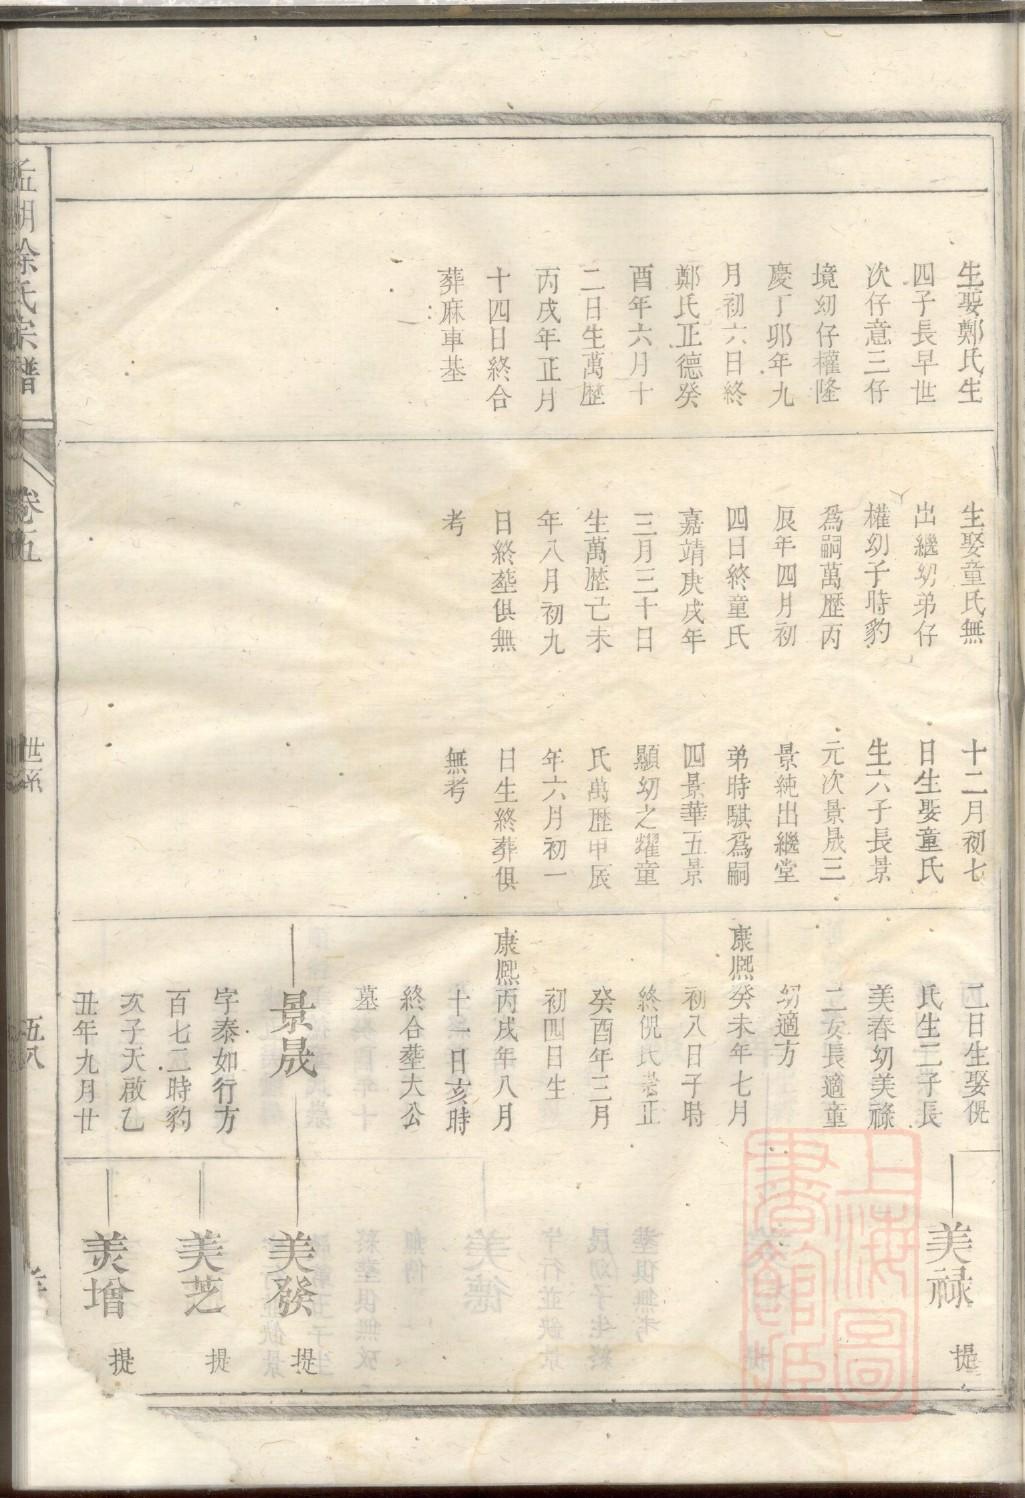 生娶鄭氏生
四子長早世
次仔意三仔
境幼仔權隆
慶丁卯年九
月初六日終
鄭氏正德癸
酉年六月十
二日生萬歷
丙戌年正月
十四日終合
葬麻車基
生娶童氏無
出繼幼弟仔
權幼子時豹
爲嗣萬歷丙
辰年四月初
四日終童氏
嘉靖庚戌年
三月三十日
生萬歷己未
年八月初九
日終塟俱無
考
十二月初七
日生娶童氏
生六子長景
元次景晟三
景純出繼堂
弟時騏爲嗣
四景華五景
顯幼之耀童
氏萬歷甲辰
年六月初一
日生終葬俱
無考
二日生娶倪
氏生二子長
美春幼美祿
二女長適童
幼適方
康熈癸未年七月
初八日子時
終倪氏崇正
癸酉年三月
初四日生
康熈丙戌年八月
十一日亥時
終合塟大公
墓
景晟
字泰如行方
百七二時豹
亥子天啟乙
丑年九月廿
美禄 提
美發 提
美芝 提
美增 提
湖徐氏宗譜
卷五
世系
五八
上海圖書館藏